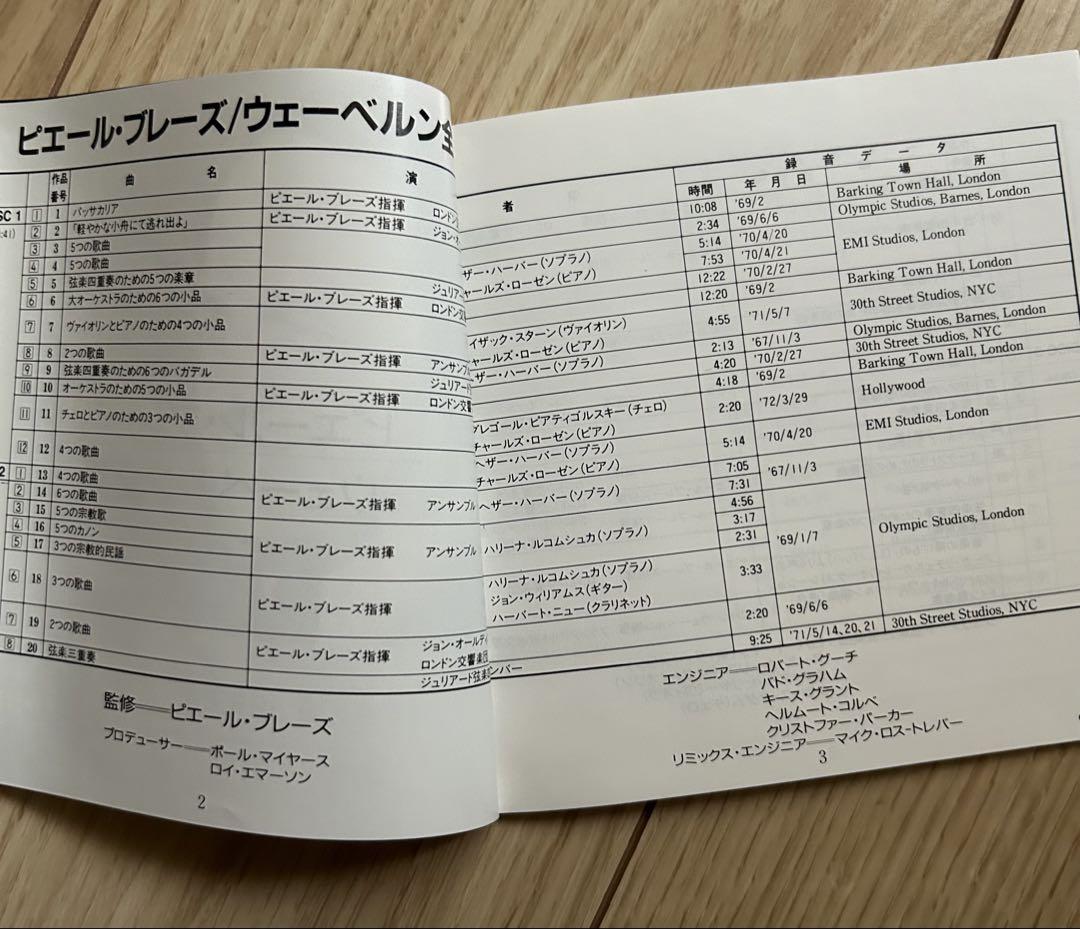 ピエール・ブレーズ/ウェーベルン全
作品番号 曲 名 演
SC 1 1 1 パッサカリア ピエール・ブレーズ指揮 ロンドン
:41) 2 2 「軽やかな小舟にて逃れ出よ」 ピエール・ブレーズ指揮 ジョン・オ
3 3 5つの歌曲
4 4 5つの歌曲
5 5 弦楽四重奏のための5つの楽章 ジュリアー
6 6 大オーケストラのための6つの小品 ピエール・ブレーズ指揮 ロンドン交
7 7 ヴァイオリンとピアノのための4つの小品
8 8 2つの歌曲 ピエール・ブレーズ指揮 アンサンブ
9 9 弦楽四重奏のための6つのバガデル ジュリアード
10 10 オーケストラのための5つの小品 ピエール・ブレーズ指揮 ロンドン交
11 11 チェロとピアノのための3つの小品
12 12 4つの歌曲
2 1 13 4つの歌曲 ピエール・ブレーズ指揮 アンサンブル
2 14 6つの歌曲
3 15 5つの宗教歌
4 16 5つのカノン ピエール・ブレーズ指揮 アンサンブル
5 17 3つの宗教的民謡
6 18 3つの歌曲 ピエール・ブレーズ指揮
7 19 2つの歌曲 ピエール・ブレーズ指揮 ジョン・オールディ
ロンドン交響楽団
8 20 弦楽三重奏 ジュリアード弦楽
監修──ピエール・ブレーズ
プロデューサー──ポール・マイヤース
ロイ・エマーソン
2
者 録音データ
時間 年月日 場所
10:08 '69/2 Barking Town Hall, London
2:34 '69/6/6 Olympic Studios, Barnes, London
ザー・ハーバー(ソプラノ) 5:14 '70/4/20 EMI Studios, London
ャールズ・ローゼン(ピアノ) 7:53 '70/4/21
12:22 '70/2/27 Barking Town Hall, London
12:20 '69/2
イザック・スターン(ヴァイオリン) 4:55 '71/5/7 30th Street Studios, NYC
チャールズ・ローゼン(ピアノ)
ザー・ハーバー(ソプラノ) 2:13 '67/11/3 Olympic Studios, Barnes, London
4:20 '70/2/27 30th Street Studios, NYC
4:18 '69/2 Barking Town Hall, London
グレゴール・ピアティゴルスキー(チェロ) 2:20 '72/3/29 Hollywood
チャールズ・ローゼン(ピアノ)
ヘザー・ハーバー(ソプラノ) 5:14 '70/4/20 EMI Studios, London
チャールズ・ローゼン(ピアノ)
ヘザー・ハーバー(ソプラノ) 7:05 '67/11/3
7:31
4:56
ハリーナ・ルコムシュカ(ソプラノ) 3:17 '69/1/7 Olympic Studios, London
2:31
ハリーナ・ルコムシュカ(ソプラノ) 3:33
ジョン・ウィリアムス(ギター)
ハーバート・ニュー(クラリネット)
2:20 '69/6/6
ンバー 9:25 '71/5/14、20、21 30th Street Studios, NYC
エンジニア──ロバート・グーチ
バド・グラハム
キース・グラント
ヘルムート・コルベ
クリストファー・パーカー
リミックス・エンジニア──マイク・ロス-トレバー
3